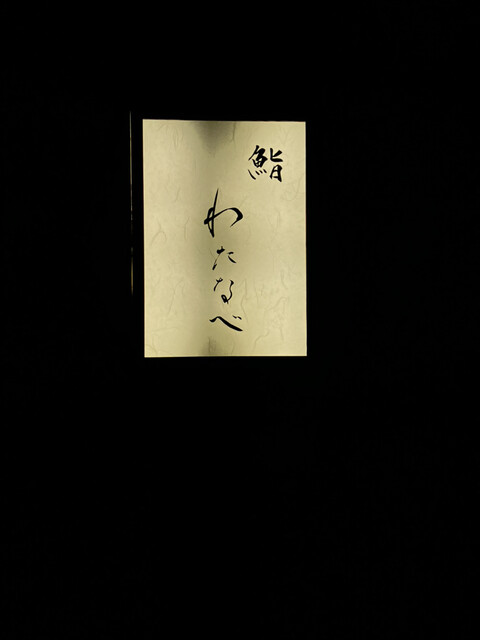 鮨
わたなべ